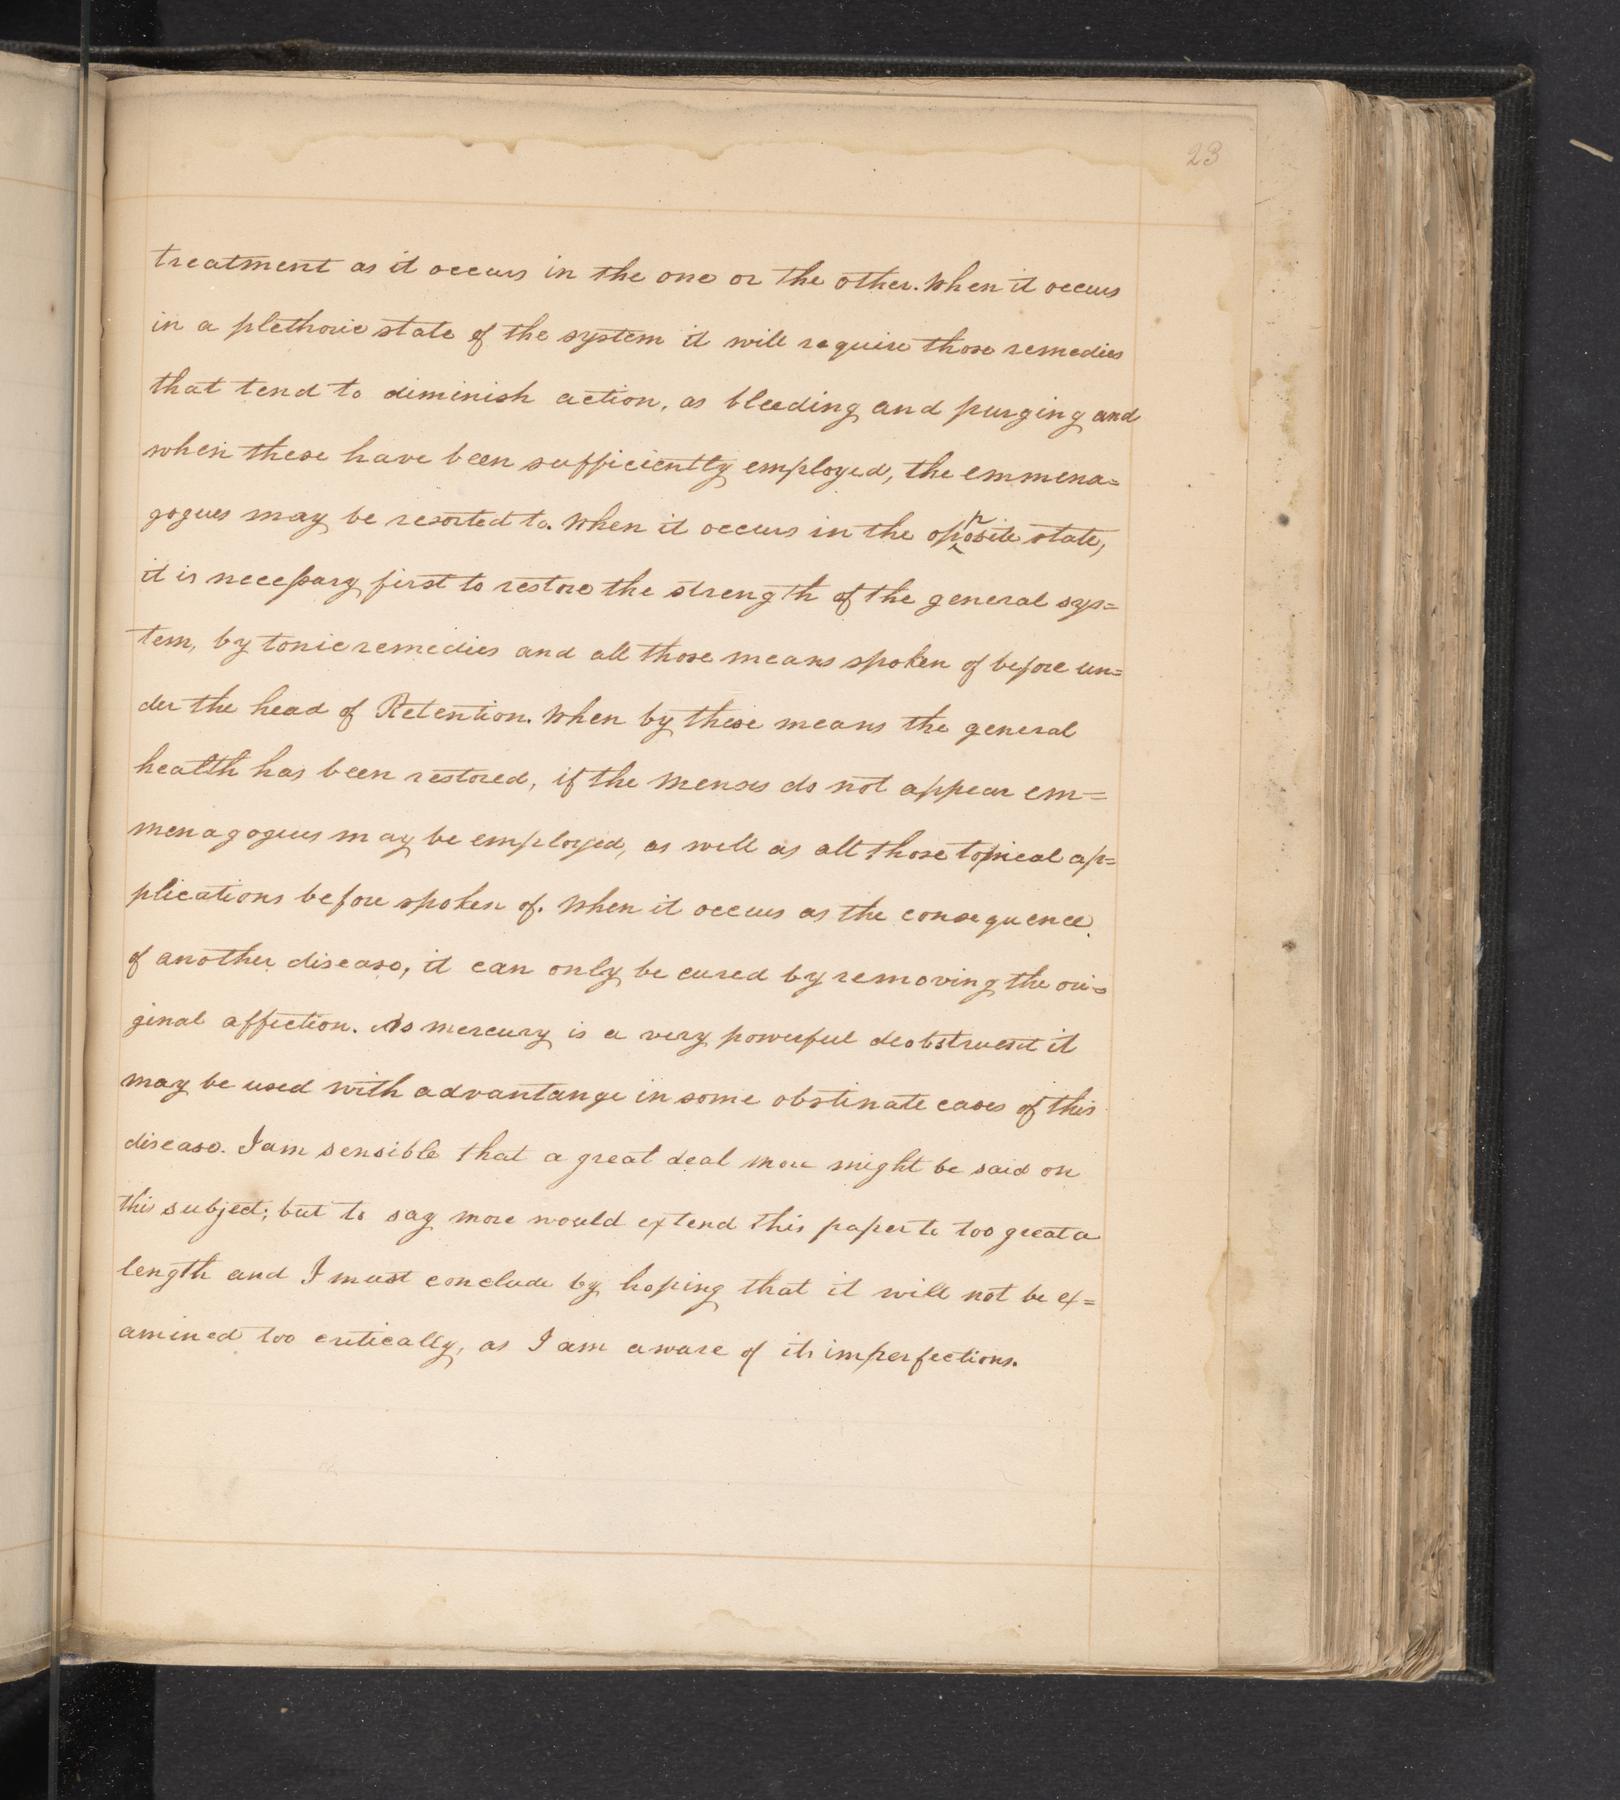 23
treatment as it occurs in the one or the other. When it occurs
in a plethoric state of the system it will require those remedies
that tend to diminish action, as bleeding and purging and
when these have been sufficiently employed, the emmena=
gogues may be resorted to. When it occurs in the opposite state,
it is necessary first to restore the strength of the general sys=
tem, by tonic remedies and all those means spoken of before un=
der the head of Retention. When by these means the general
health has been restored, if the menses do not appear em=
menagogues may be employed, as well as all those topical ap=
plications before spoken of. When it occurs as the consequence
of another disease, it can only be cured by removing the ori=
ginal affection. As mercury is a very powerful deobstruent it
may be used with advantange in some obstinate cases of this
disease. I am sensible that a great deal more might be said on
this subject; but to say more would extend this paper to too great a
length and I must conclude by hoping that it will not be ex=
amined too critically, as I am aware of its imperfections.